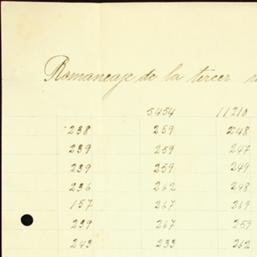 Romaneaje de la tercer
5454 11210
238 259 248
239 259 247
239 259 249
236 262 248
157 267 269
239 267 259
243 233 262